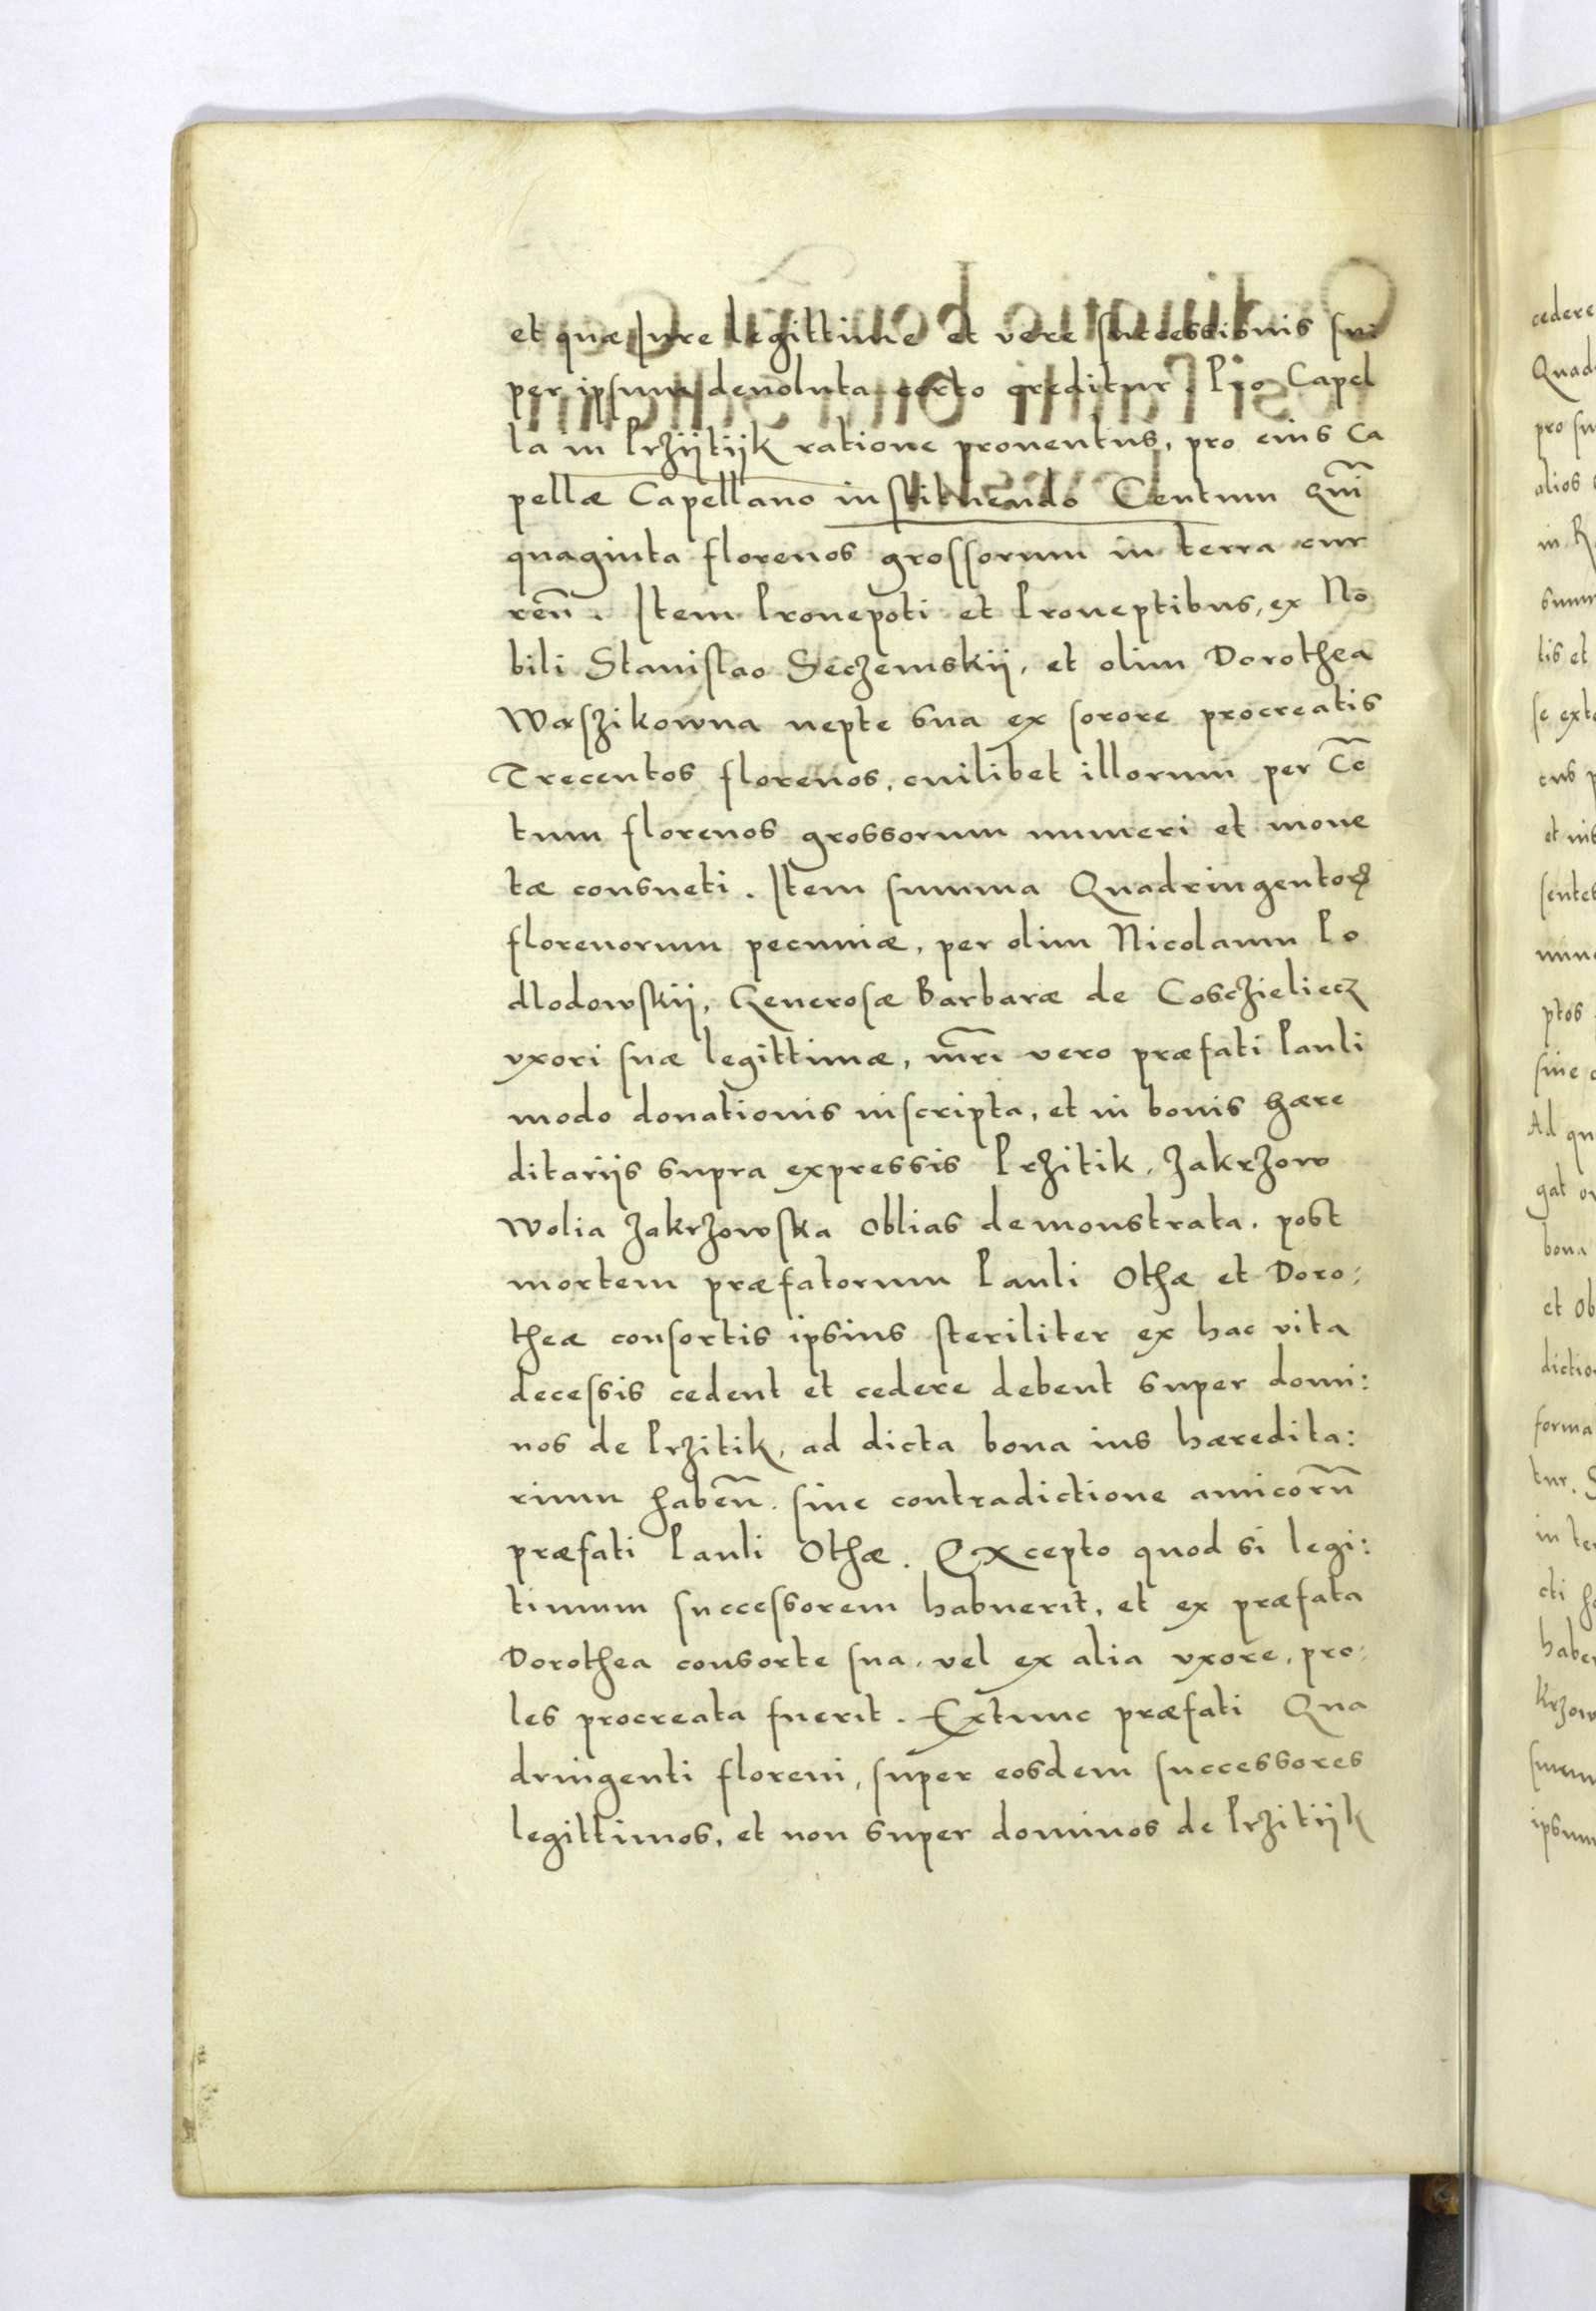 et quæ Jure legittime et vere successionis sui
per ipsum devoluta certo creditur. Pro Capel
la in Przijtijk ratione proventus, pro eius Ca
pellæ Capellano instituendo Centum Qui͞
quaginta florenos grossorum in terra cur
ren͞. Item Pronepoti et Proneptibus, ex No͞
bili Stanislao Seczemskij, et olim Dorothea
Waszikowna nepte sua ex sorore procreatis
Trecentos florenos, cuilibet illorum per Ce͞
tum florenos grossorum numeri et mone
tæ consueti. Item summa Quadringentorꝝ
florenorum pecuniæ, per olim Nicolaum Po
dlodowskij, Generosæ Barbaræ de Cosczieliecz
vxori suæ legittimæ, mr͞i vero præfati Pauli
modo donationis inscripta, et in bonis hære
ditarijs supra expressis Przitik, Zakrzow
Wolia Zakrzowska Oblias demonstrata. post
mortem præfatorum Pauli Othæ et Doro:
theæ consortis ipsius steriliter ex hac vita
decessis cedent et cedere debent super domi:
nos de Przitik, ad dicta bona ius hæredita:
rium haben͞. sine contradictione amicoru͞
præfati Pauli Othæ. Excepto quod si legi:
timum successorem habuerit, et ex præfata
Dorothea consorte sua, vel ex alia vxore, pro:
les procreata fuerit. Extunc præfati Qua
dringenti floreni, super eosdem successores
legittimos, et non super dominos de Przitijk
cedere
pro su
alios
in R
tis et
se exte
sentes
ptos
sine
Ad qu
gat
bona
et Ob
dictio
forma
tur.
in te
cti
habe
krzow
ipsum